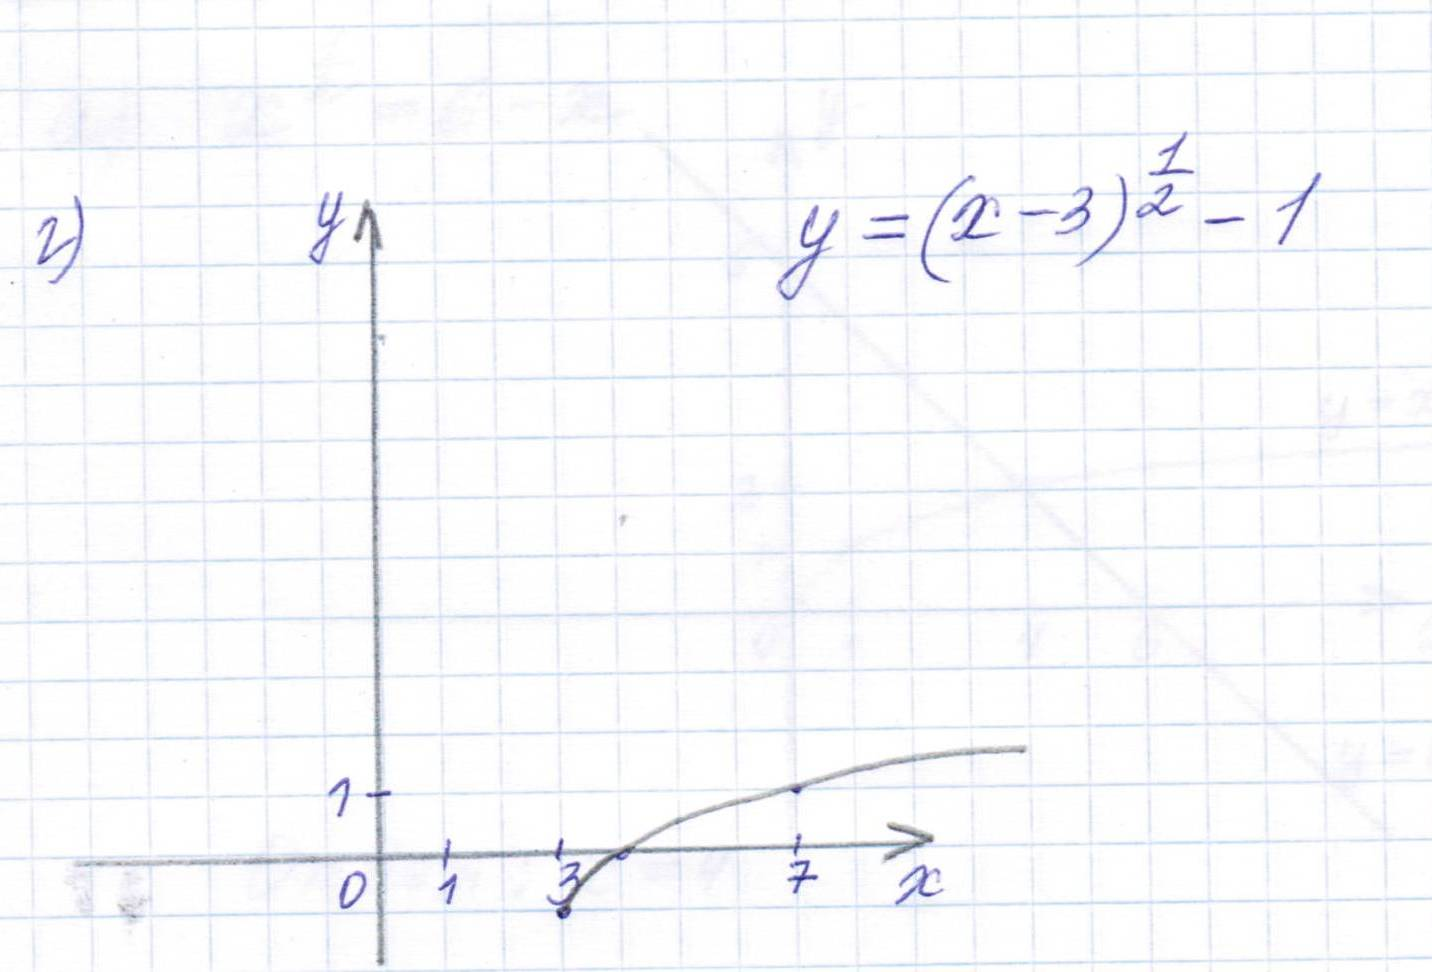 г)
y
y = (x - 3)^{\frac{1}{2}} - 1
1
0 1 3 7 x